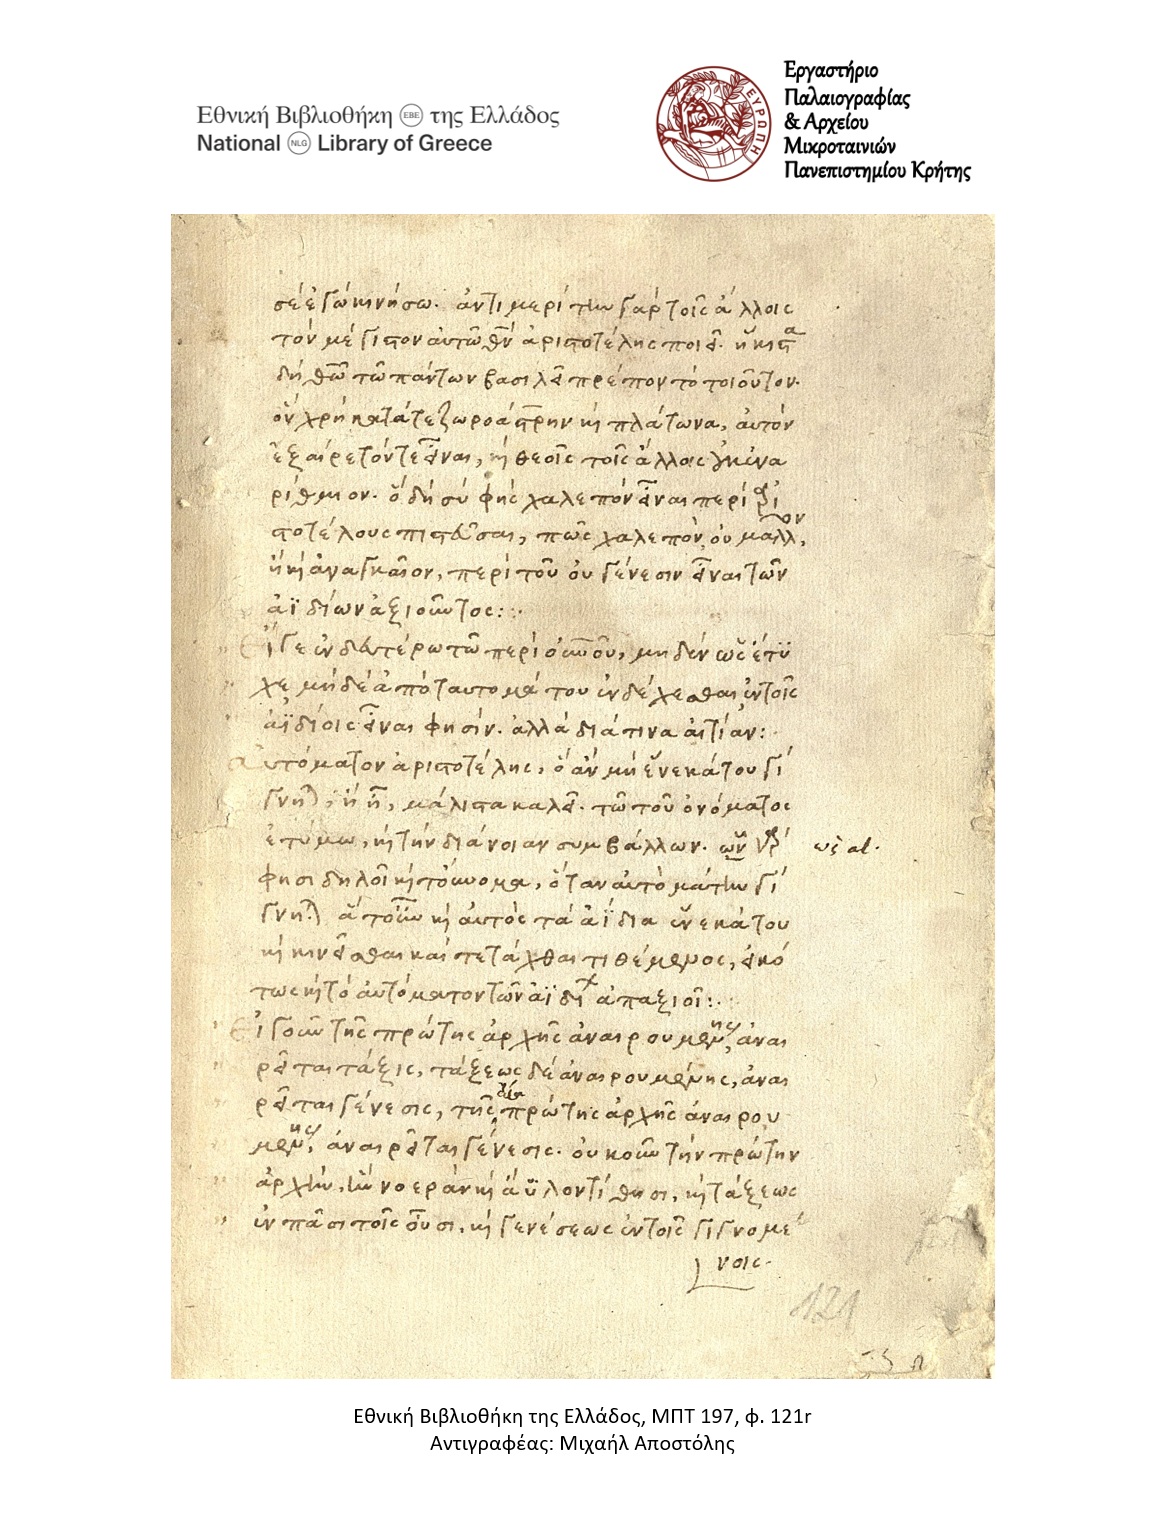 Εθνική Βιβλιοθήκη EBE της Ελλάδος
National NLG Library of Greece
ΕΥΡΩΠΗ
Εργαστήριο
Παλαιογραφίας
& Αρχείου
Μικροταινιών
Πανεπιστημίου Κρήτης
σέ ἐγώ κινήσω. ἀντιμερίτην γάρ τοῖς ἄλλοις
τόν μέγιστον αὐτῶ θν ἀριστοτέλης ποιεῖ. ἥκιστα
δή θῶ τῶ πάντων βασιλεῖ πρέπον τό τοιοῦτον.
οὗ χρή κατά τε ζωροάστρην κή πλάτωνα, αὐτόν
ἐξαίρετόν τε εἶναι, κή θεοῖς τοῖς ἄλλοις
ριθμιον. ὅ δή σύ φής χαλεπόν εἶναι περί ἀρι
στοτέλους πιστεῦσαι, πῶς χαλεπόν, οὐ μᾶλλον,
ἤ κή ἀναγκαῖον, περί τοῦ οὐ γένεσιν εἶναι τῶν
ἀϊδίων ἀξιοῦντος:
Εἴ γε ἐν δευτέρω τῶ περί οὐνοῦ, μηδέν ὡς ἔτυ
χε μηδέ ἀπό ταυτομάτου ἐνδέχεσθαι ἐν τοῖς
ἀϊδίοις εἶναι φησίν. ἀλλά διά τινα αἰτίαν:
Αὐτόματον ἀριστοτέλης, ὅ ἄν μή ἕνεκά του γί
γνηται, ἤ ἦ, μάλιστα καλεῖ. τῶ τοῦ ὀνόματος
ἐτύμω, κή τήν διάνοιαν συμβάλλων. οὗν γάρ
ὡς αλ.
φησι δηλοῖ κή τοὔνομα, ὅταν αὐτό μάτην γί
γνηται ἅ τοίνυν κή αὐτός τά ἀΐδια ἕνεκά του
κή κινεῖσθαι καί τετάχθαι τιθέμενος, εἰκό
τως κή τό αὐτόματον τῶν ἀϊδίων ἀπαξιοῖ:
Εἰ γοῦν τῆς πρώτης ἀρχῆς ἀναιρουμένης, ἀναι
ρεῖται τάξις, τάξεως δέ ἀναιρουμένης, ἀναι
ρεῖται γένεσις, τῆς πρώτης ἀρχῆς ἀναιρου
μένης, ἀναιρεῖται γένεσις. οὐκοῦν τήν πρώτην
ἀρχήν, ἥν νοεράν κή ἄϋλον τίθησι, κή τάξεως
ἐν πᾶσι τοῖς οὖσι, κή γενέσεως ἐν τοῖς γιγνομέ
νοις.
121
Εθνική Βιβλιοθήκη της Ελλάδος, ΜΠΤ 197, φ. 121r
Αντιγραφέας: Μιχαήλ Αποστόλης